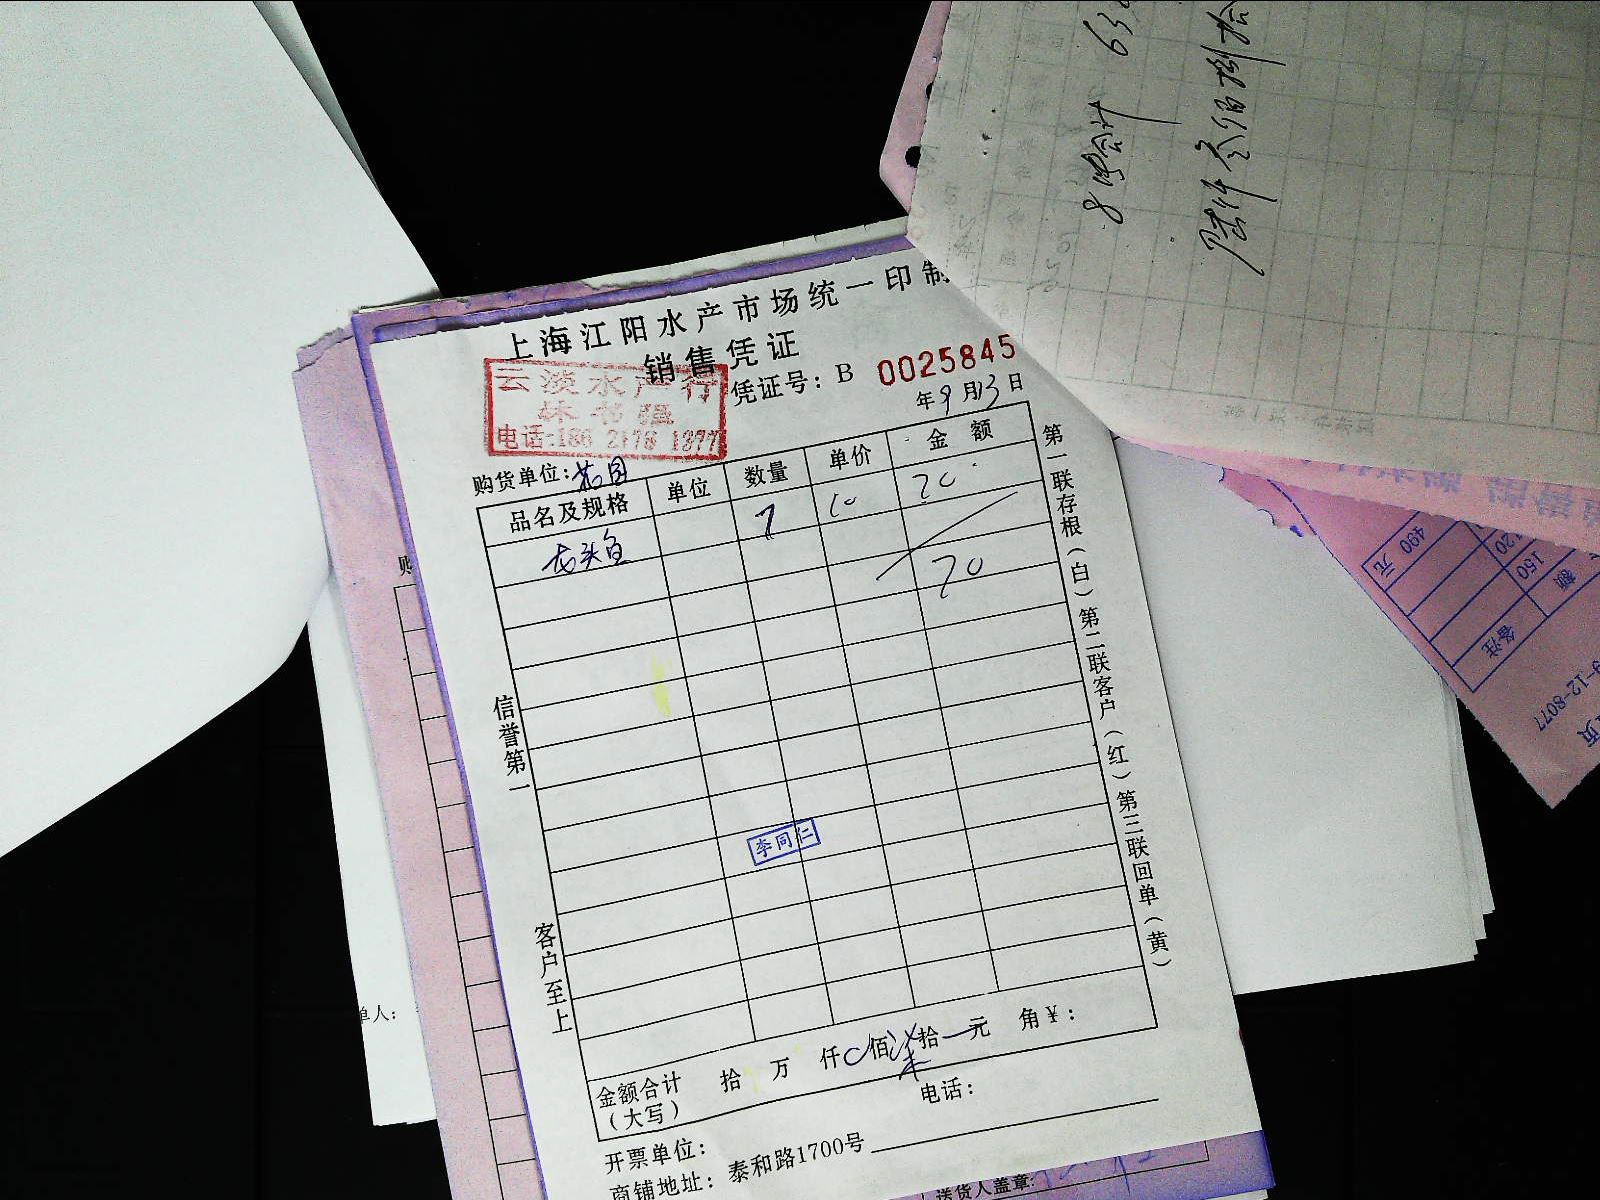 上海江阳水产市场统一印制
销售凭证
云淡水产行
林书强
凭证号：B 0025845
电话:186 2176 1377
年9月13日
购货单位：
品名及规格 单位 数量 单价 金额
龙头鱼 7 10 70
70
第一联存根（白）第二联客户（红）第三联回单（黄）
信誉第一
客户至上
李同仁
金额合计 拾 万 仟 0 佰 柒 拾 元 角￥：
（大写）
电话：
开票单位：
商铺地址：泰和路1700号
送货人盖章：
单人：
购
8月合计
490 元
120
150
额
备注